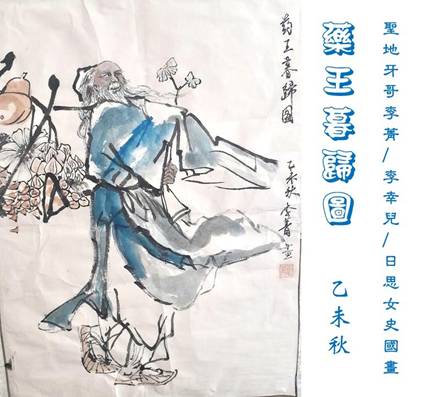 聖地牙哥李菁/李幸兒/日思女史國畫
藥王暮歸圖
乙未秋
药王暮歸图
乙未秋 李菁画